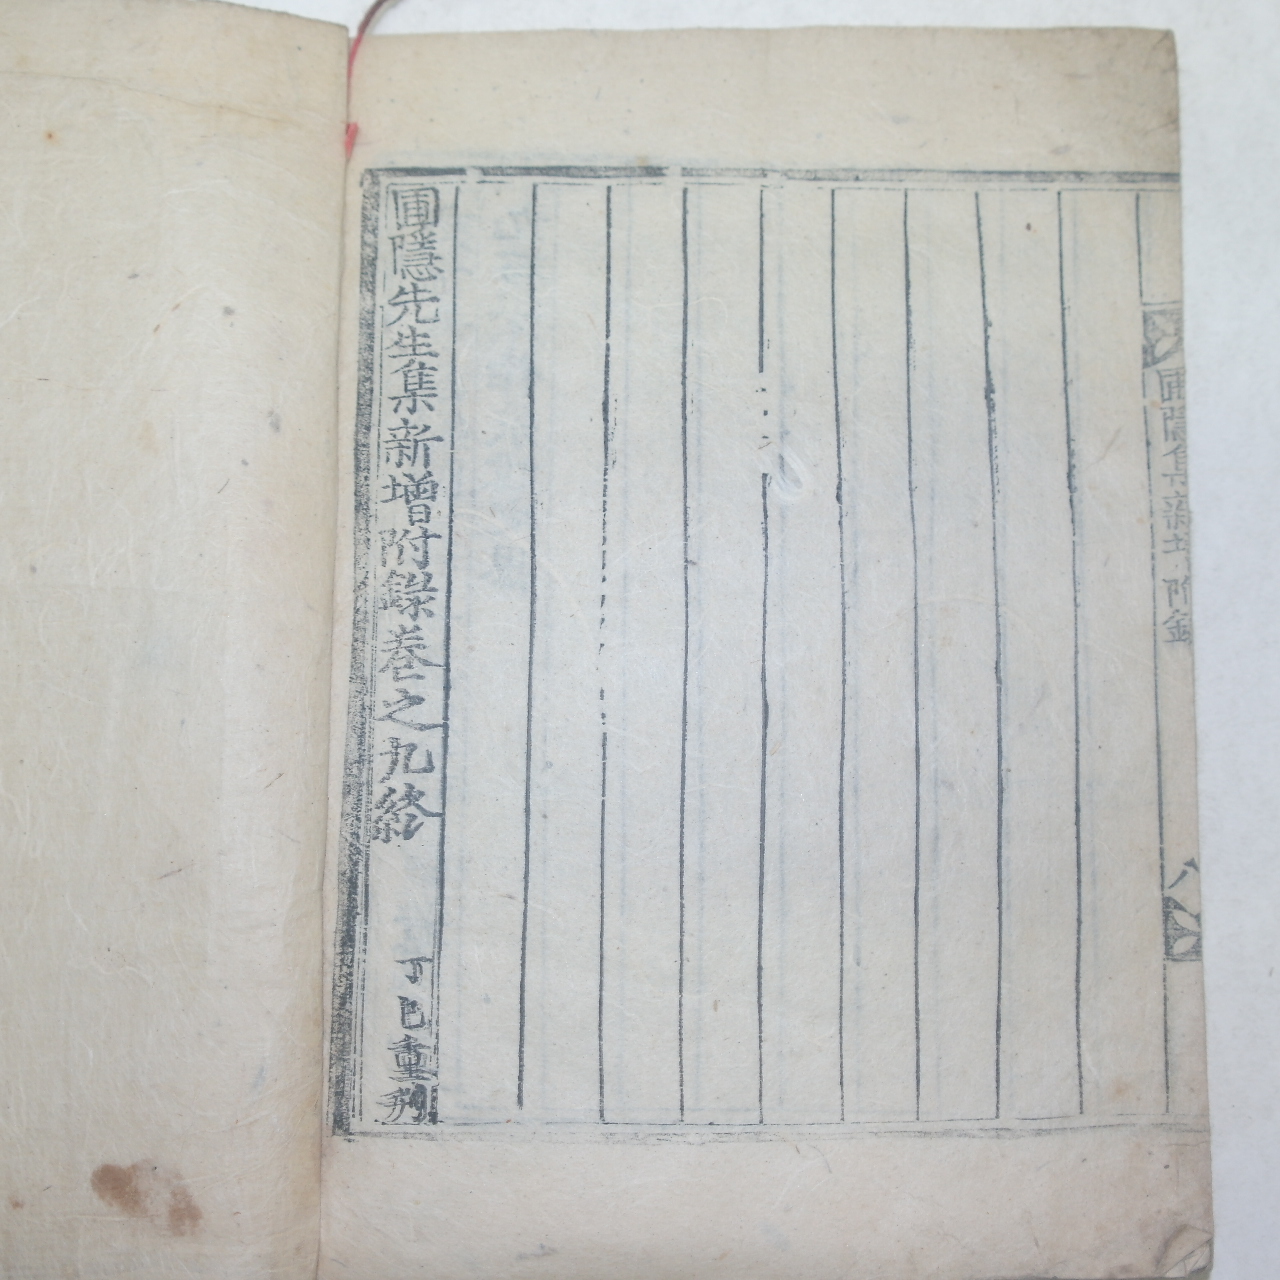 圃隱集新增附錄
八
圃隱先生集新增附錄卷之九終
丁巳重刊